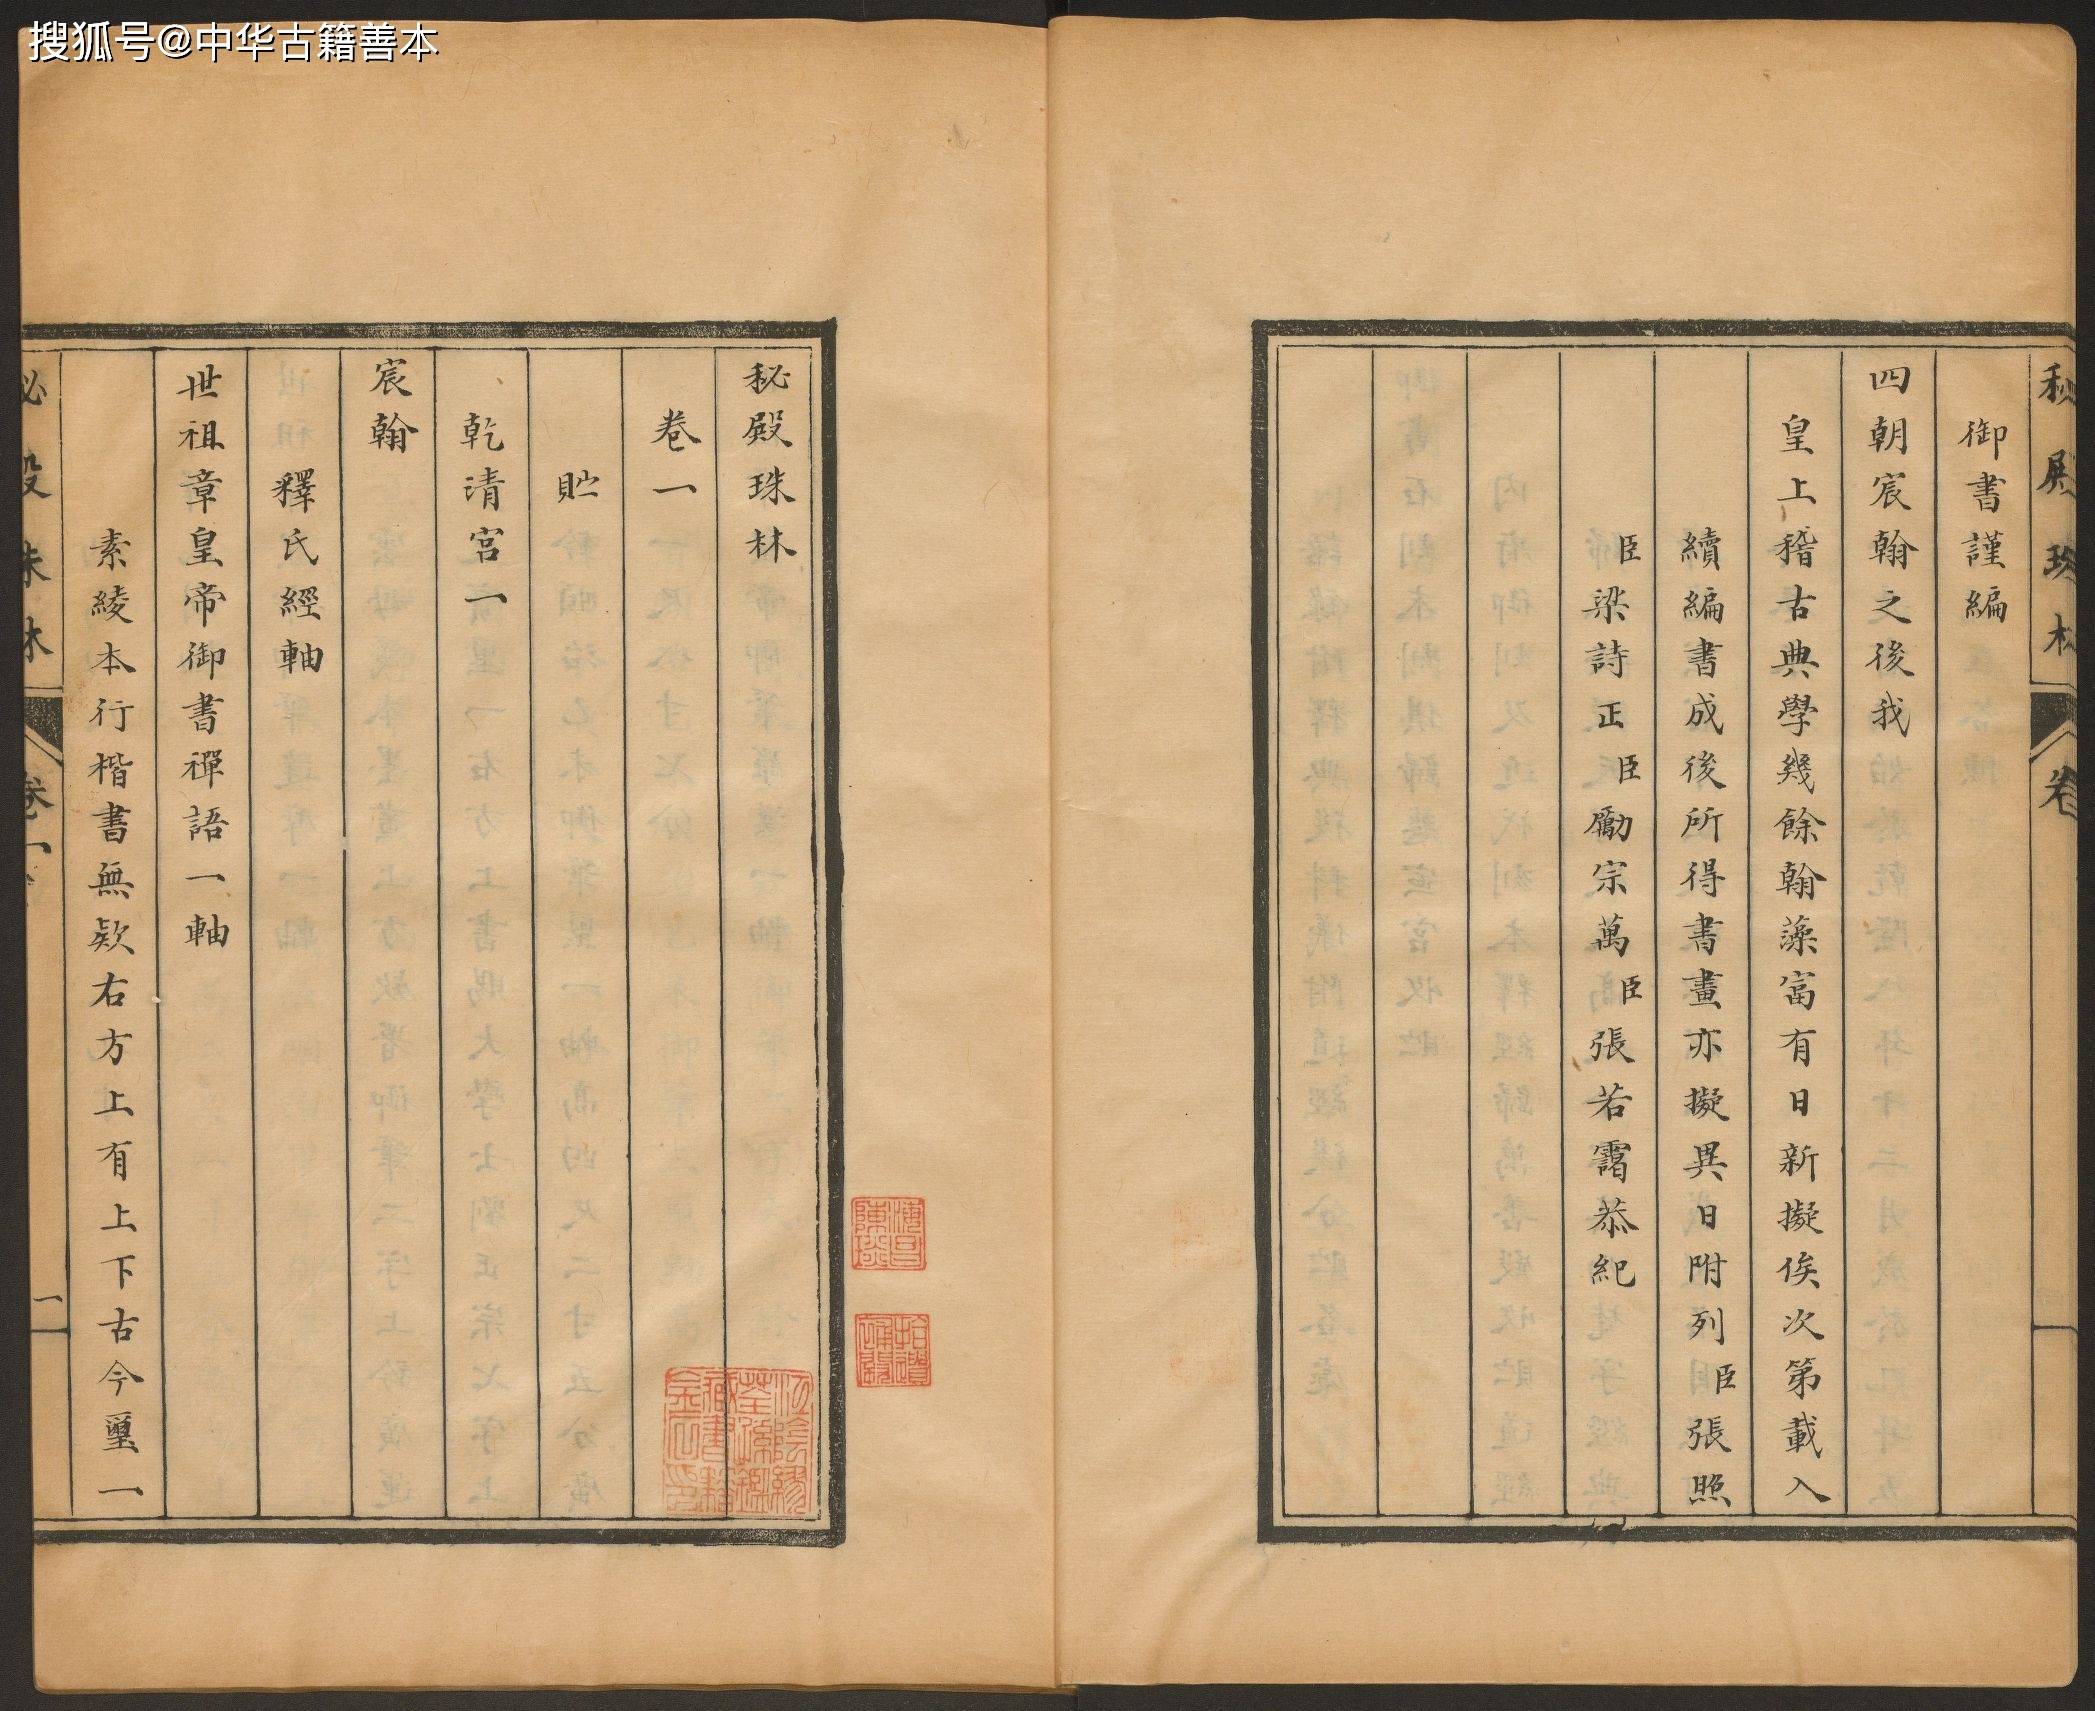 搜狐号@中华古籍善本
御書謹編
四朝宸翰之後我
皇上稽古典學幾餘翰藻富有日新擬俟次第載入
續編書成後所得書畫亦擬異日附列臣張照
臣梁詩正臣勵宗萬臣張若靄恭紀
秘殿珠林
卷一
貯
乾清宮一
宸翰
釋氏經軸
世祖章皇帝御書禪語一軸
素綾本行楷書無款右方上有上下古今璽一
秘殿珠林 卷一 一